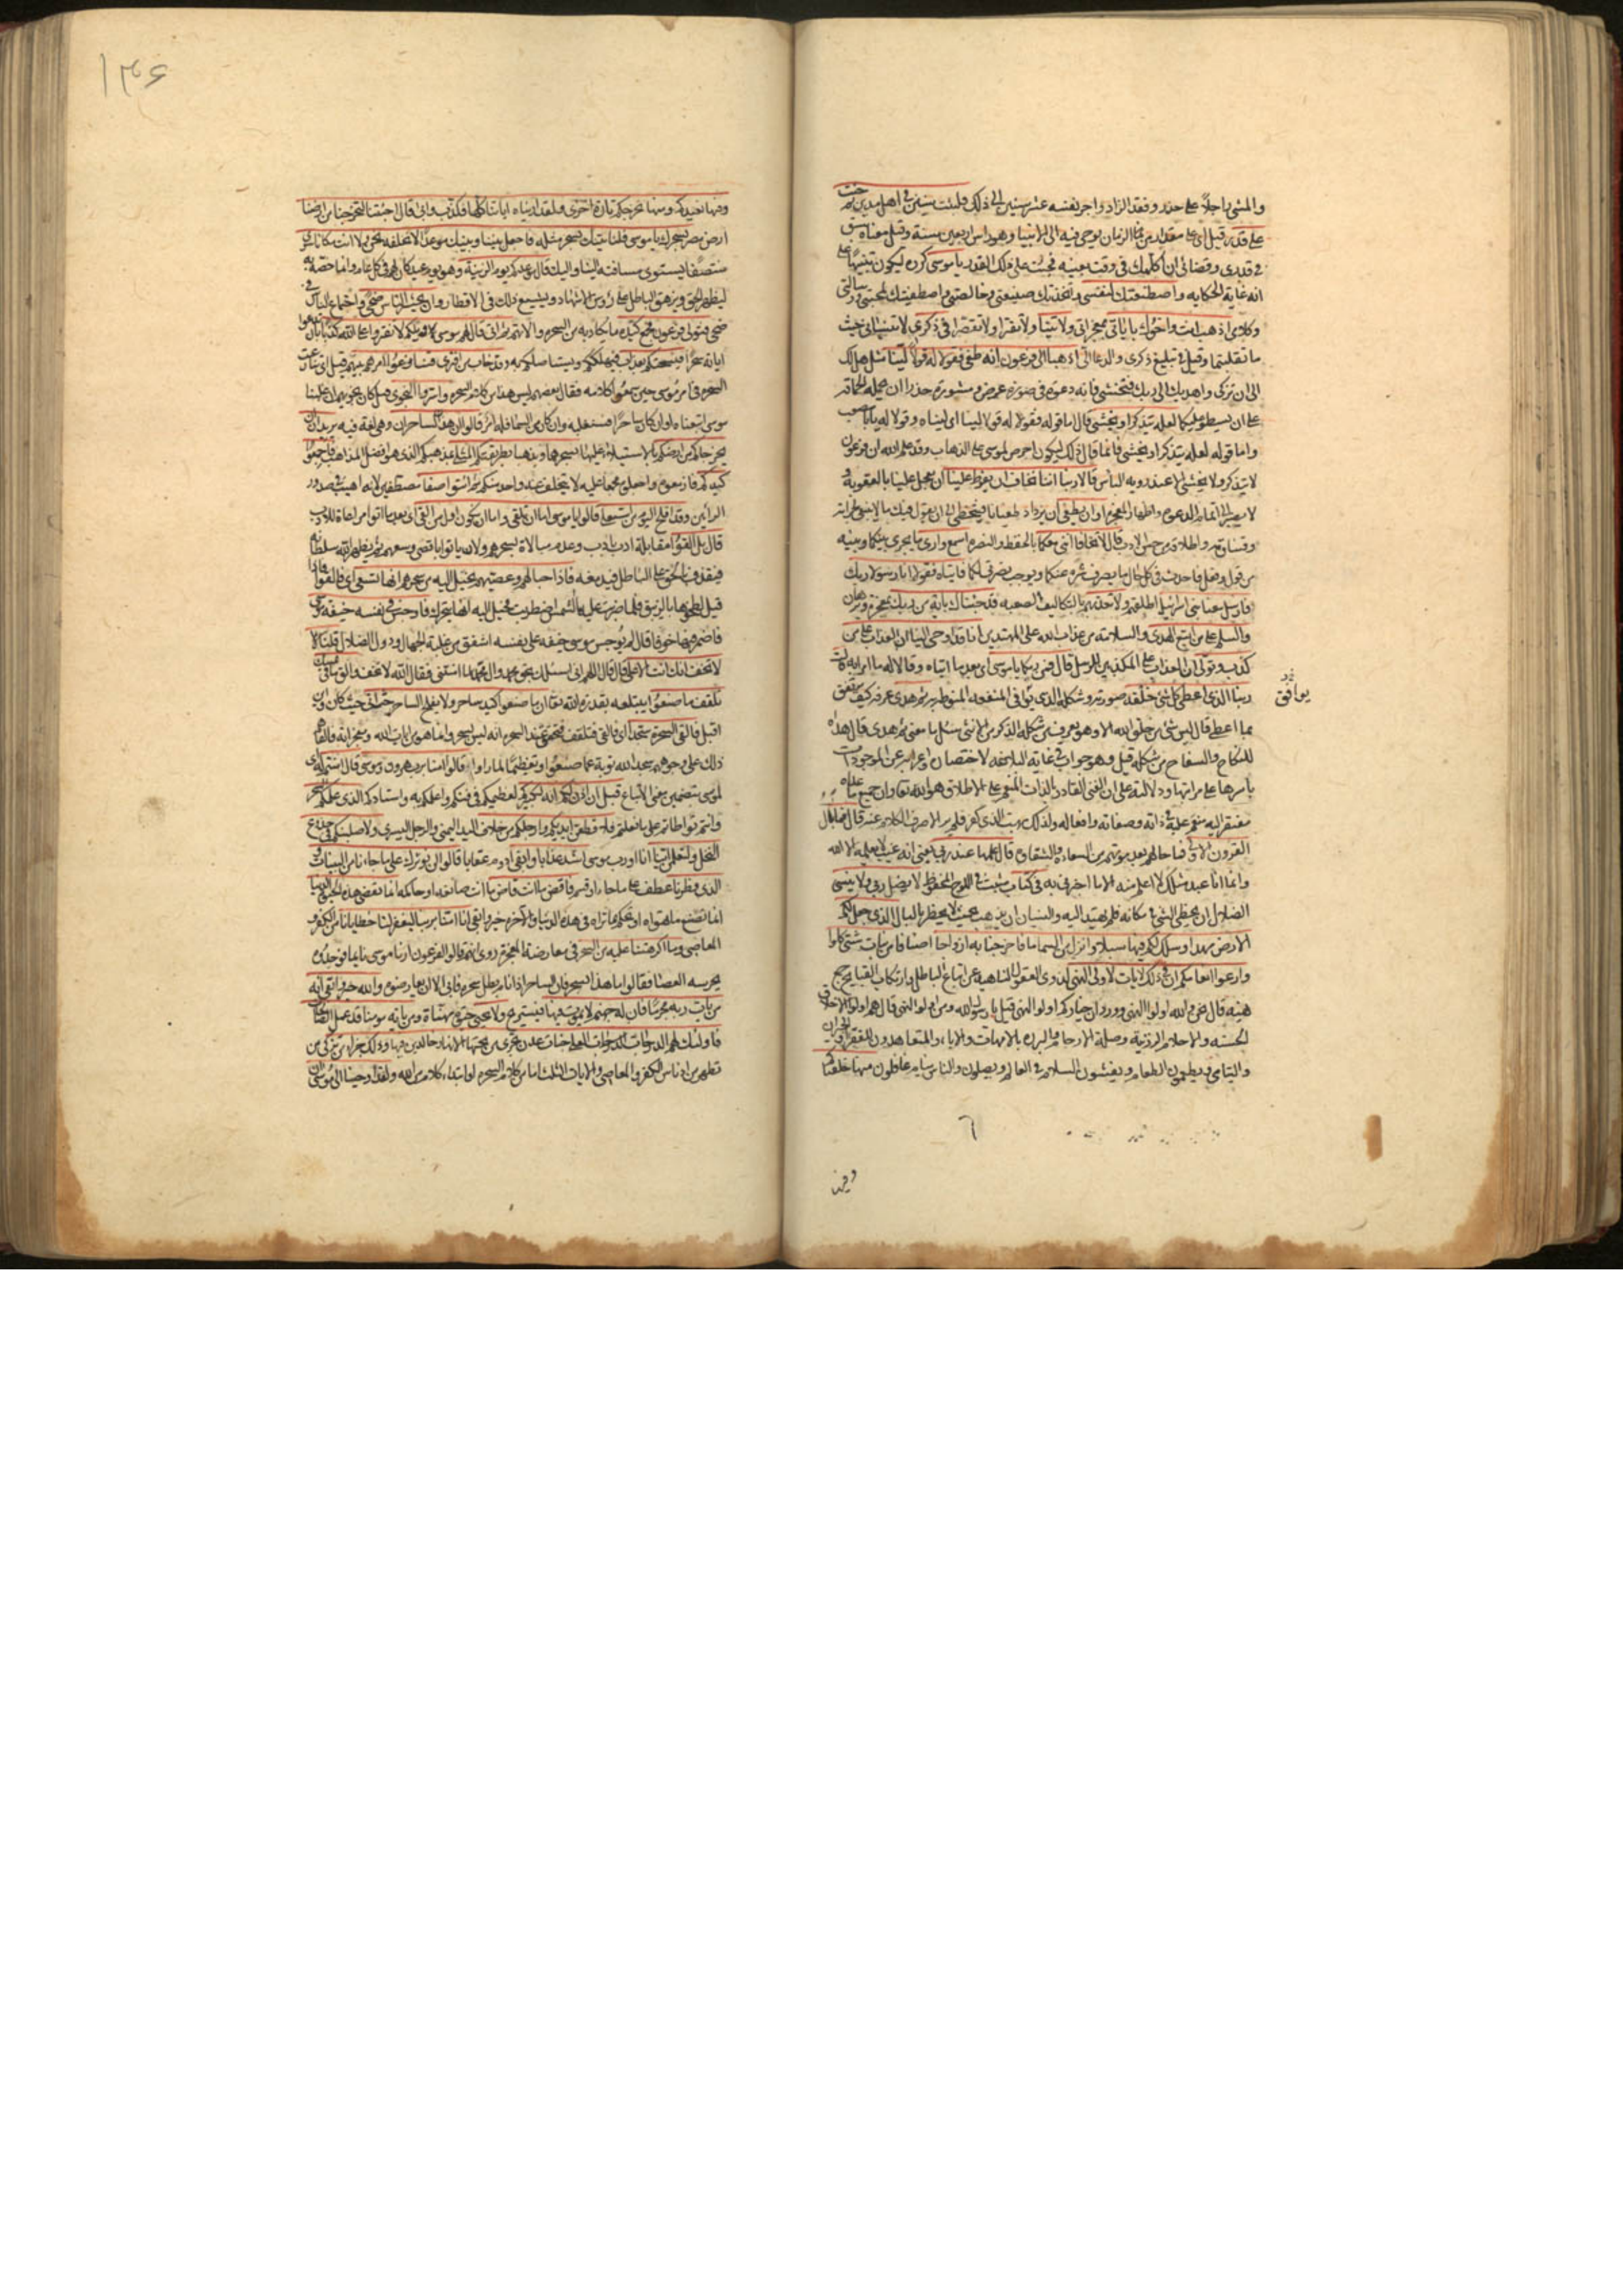 والمشي راجلا على حذر وفقد الزاد واجر نفسه عشر سنين الى ذلك فلبثت سنين في اهل مدين ثم جئت
على قدر قيل اى على مقدار من الزمان يوحى فيه الى الانبياء وهو راس اربعين سنة وقيل معناه سبق
في قدرى وقضائى ان اكلمك في وقت بعينه فجئت على ذلك القدر يا موسى كرره ليكون تنبيها على
انه غاية الحكايه واصطنعتك لنفسى واتخذتك صنيعتى وخالصتى واصطفيتك لمحبتى ورسالتى
وكلامى اذهب انت واخوك باياتى بمعجزاتى ولا تنيا ولا تفترا ولا تقصرا في ذكرى لا تنسيانى حيث
ما تقلبتما وقيل في تبليغ ذكرى والدعا الى اذهبا الى فرعون انه طغى فقولا له قولا لينا مثل هل لك
الى ان تزكى واهديك الى ربك فتخشى فانه دعوة في صورة عرض ومشورة حذرا ان حمله الحماقة
على ان يسطو عليكما لعله يتذكر او يخشى قال اما قوله فقولا له قولا لينا اى لينا وقولا له يا با مصعب
واما قوله لعله يتذكر او يخشى فانما قال ذلك ليكون احرص لموسى على الذهاب وقد علم الله ان فرعون
لا يتذكر ولا يخشى الا عند رويه الباس قالا ربنا اننا نخاف ان يفرط علينا ان يعجل علينا بالعقوبة و
لا يصبر الى اتمام الدعوه واظهار المعجزه او ان يطغى ان يزداد طغيانا فيتخطى الى ان يقول فيك ما لا ينبغى لجراته
وقساوته واطلاقه من حسن الادب قال لا تخافا اننى معكما بالحفظ والنصره اسمع وارى ما يجرى بينكما وبينه
من قول وفعل فاحدث في كل حال ما يصرف شره عنكما ويوجب نصرتى لكما فاتياه فقولا انا رسولا ربك
فارسل معنا بنى اسرائيل اطلقهم ولا تعذبهم بالتكاليف الصعبه قد جئناك باية من ربك بمعجزه وبرهان
والسلم على من اتبع الهدى والسلامه من عذاب الله على المهتدين انا قد اوحى الينا ان العذاب على من
كذب وتولى ان العذاب على المكذبين للرسل قال فمن ربكما يا موسى اى بعد ما اتياه وقالا له ما امرا به قال
ربنا الذى اعطى كل شئ خلقه صورته وشكله الذى يوافق المنفعه المنوطه به ثم هدى عرفه كيف يرتفق
يوافق
بما اعطى قال ليس شئ من خلق الله الا وهو يعرف من شكله الذكر من الانثى سئل ما معنى ثم هدى قال هداه
للنكاح والسفاح من شكله قيل وهو جواب في غاية البلاغه لاختصاره واعرابه عن الموجودات
باسرها على مراتبها ودلالته على ان الغنى القادر بالذات المنعم على الاطلاق هو الله تعالى وان جميع ما عداه
مفتقر اليه منعم عليه في ذاته وصفاته وافعاله ولذلك بهت الذى كفر فلم ير الا صرف الكلام عنه قال فما بال
القرون الاولى فما حالهم بعد موتهم من السعاده والشقاوه قال علمها عند ربى يعنى انه غيب لا يعلمه الا الله
وانما انا عبد مثلك لا اعلم منه الا ما اخبرنى به في كتاب مثبت في اللوح المحفوظ لا يضل ربى ولا ينسى
الضلال ان يخطى الشئ في مكانه فلم يهتد اليه والنسيان ان يذهب عنه بحيث لا يخطر بالبال الذى جعل لكم
الارض مهدا وسلك لكم فيها سبلا وانزل من السماء ماء فاخرجنا به ازواجا اصنافا من نبات شتى كلوا
وارعوا انعامكم ان في ذلك لايات لاولى النهى لذوى العقول الناهيه عن اتباع الباطل وارتكاب القبايح جمع
نهيه قال نحن والله اولوا النهى وورد ان خياركم اولوا النهى قيل يا رسول الله ومن اولوا النهى قال هم اولوا الاخلاق
الحسنه والاحلام الرزينة وصلة الارحام والبررة بالامهات والاباء والمتعاهدون للفقراء والجيران
واليتامى ويطعمون الطعام ويفشون السلام في العالم ويصلون والناس نيام غافلون منها خلقناكم
٦
وفيها
١٣۶
وفيها نعيدكم ومنها نخرجكم تارة اخرى ولقد اريناه اياتنا كلها فكذب وابى قال اجئتنا لتخرجنا من ارضنا
ارض مصر بسحرك يا موسى فلناتينك بسحر مثله فاجعل بيننا وبينك موعدا لا نخلفه نحن ولا انت مكانا سوى
منتصفا يستوى مسافته الينا واليك قال موعدكم يوم الزينة وهو يوم عيد كان لهم في كل عام وانما خصه به
ليظهر الحق ويزهق الباطل على رؤس الاشهاد ويشيع ذلك في الاقطار وان يحشر الناس ضحى واجتماع الناس في
ضحى فتولى فرعون فجمع كيده ما يكاد به من السحره والاتهم ثم اتى قال لهم موسى ويلكم لا تفتروا على الله كذبا بان تدعوا
اياته سحرا فيسحتكم بعذاب فيهلككم ويستاصلكم به وقد خاب من افترى فتنازعوا امرهم بينهم قيل اى تنازعت
السحره في امر موسى حين سمعوا كلامه فقال بعضهم ليس هذا من كلام السحره واسروا النجوى قيل كان نجويهم ان غلبنا
موسى اتبعناه او ان كان ساحرا فسنغلبه وان كان من السما فله امر قالوا ان هذان لساحران وهى لغة فيه يريدان ان
يخرجاكم من ارضكم بالاستيلاء عليها بسحرهما ويذهبا بطريقتكم المثلى بمذهبكم الذى هو افضل المذاهب فاجمعوا
كيدكم فازمعوه واجعلوه مجمعا عليه لا يتخلف عنه واحد منكم ثم ائتوا صفا مصطفين لانه اهيب في صدور
الرائين وقد افلح اليوم من استعلى قالوا يا موسى اما ان تلقى واما ان نكون اول من القى اى بعد ما اتوا مراعاة للادب
قال بل القوا مقابلة ادب بادب وعدم مبالاة بسحرهم ولان ياتوا باقصى وسعهم ثم يظهر الله سلطانه
فيقذف بالحق على الباطل فيدمغه فاذا حبالهم وعصيهم يخيل اليه من سحرهم انها تسعى اى فالقوا فاذا
قيل لطخوها بالزيبق فلما ضربت عليها الشمس اضطربت فخيل اليه انها تتحرك فاوجس في نفسه خيفة موسى
فاضمر فيها خوفا قال لم يوجس موسى خيفة على نفسه اشفق من غلبة الجهال ودول الضلال قلنا لا
لا تخف انك انت الاعلى قال قال اللهم انى اسئلك بحق محمد وال محمد لما امنتنى فقال الله لا تخف والق ما في يمينك
تلقف ما صنعوا يبتلعه بقدرة الله تعالى ان ما صنعوا كيد ساحر ولا يفلح الساحر حيث اتى حيث كان واين
اقبل فالقى السحرة سجدا اى فالقى فتلقفت فتحقق عند السحره انه ليس بسحر وانما هو من ايات الله ومعجزاته فالقاهم
ذلك على وجوههم سجدا لله توبة عما صنعوا وتعظيما لما راوا قالوا امنا برب هرون وموسى قال امنتم له اى
لموسى بتضمين معنى الاتباع قبل ان اذن لكم انه لكبيركم لعظيمكم في فنكم واعلمكم به واستادكم الذى علمكم السحر
وانتم تواطاتم على ما فعلتم فلاقطعن ايديكم وارجلكم من خلاف اليد اليمنى والرجل اليسرى ولاصلبنكم في جذوع
النخل ولتعلمن اينا انا او رب موسى اشد عذابا وابقى ادوم عقابا قالوا لن نؤثرك على ما جاءنا من البينات و
الذى فطرنا عطف على ما جاءنا او قسم فاقض ما انت قاض ما انت صانعه او حاكمه انما تقضى هذه الحيوة الدنيا
انما تصنع ما تهواه او تحكم بما تراه في هذه الدنيا والاخره خير وابقى انا امنا بربنا ليغفر لنا خطايانا من الكفر و
المعاصى وما اكرهتنا عليه من السحر في معارضة المعجزه روى انهم قالوا لفرعون ارنا موسى نائما فوجدوه
يحرسه العصا فقالوا ما هذا السحر فان الساحر اذا نام بطل سحره فابى الا ان يعارضوه والله خير وابقى انه
من يات ربه مجرما فان له جهنم لا يموت فيها فيستريح ولا يحيى حيوة مهناة ومن ياته مومنا قد عمل الصالحات
فاولئك لهم الدرجات العلى جنات عدن تجرى من تحتها الانهار خالدين فيها وذلك جزاء من تزكى من
تطهر من ادناس الكفر والمعاصى والايات الثلث اما من كلام السحره او ابتداء كلام من الله ولقد اوحينا الى موسى ان